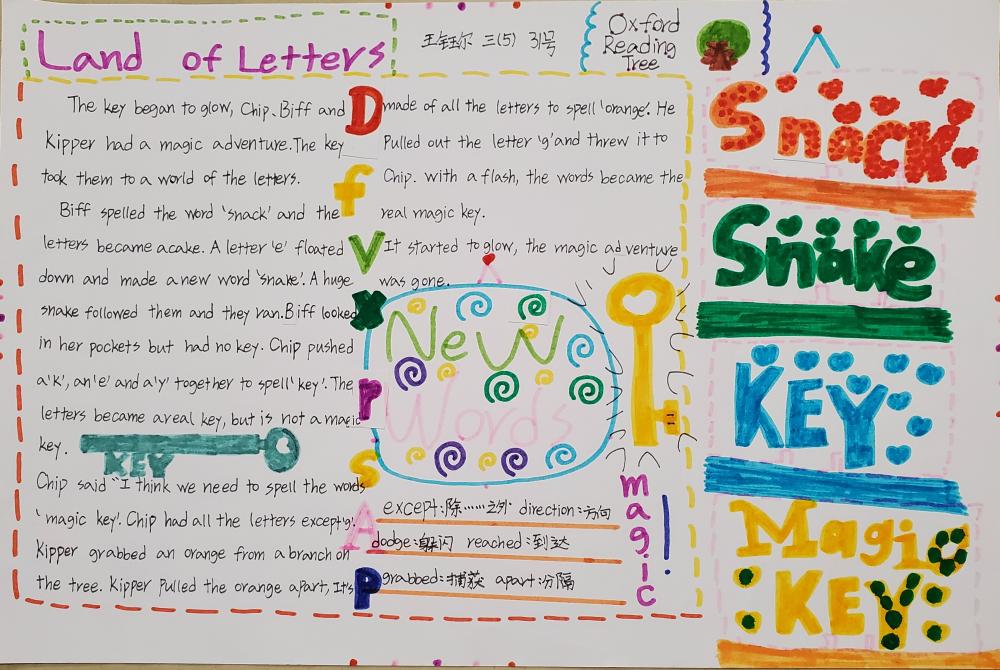 Land of Letters
王钰尔 三(5) 31号
Oxford
Reading
Tree
The key began to glow, Chip. Biff and
Kipper had a magic adventure. The key
took them to a world of the letters.
Biff spelled the word 'snack' and the
letters became a cake. A letter 'e' floated
down and made a new word 'snake'. A huge
snake followed them and they ran. Biff looked
in her pockets but had no key. Chip pushed
a 'k', an 'e' and a 'y' together to spell 'key'. The
letters became a real key, but is not a magic
key.
KEY
Chip said "I think we need to spell the words
'magic key'. Chip had all the letters except 'g'.
Kipper grabbed an orange from a branch on
the tree. Kipper Pulled the orange apart, It's
D
f
V
X
P
S
A
P
made of all the letters to spell 'orange'. He
Pulled out the letter 'g' and threw it to
Chip. with a flash, the words became the
real magic key.
It started to glow, the magic adventure
was gone.
New
Words
except:除……之外 direction:方向
dodge:躲闪 reached:到达
grabbed:捕获 apart:分隔
magic!
Snack
Snake
KEY
Magic
KEY